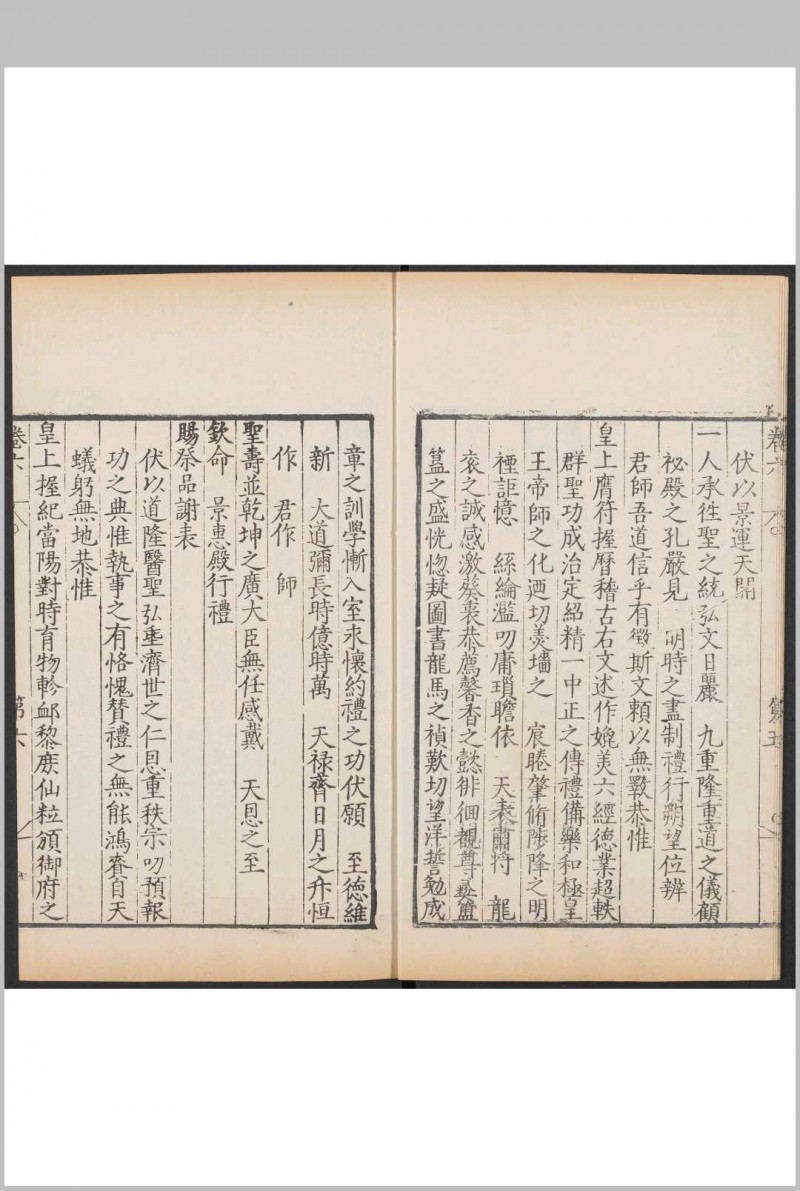 卷六
第五
伏以景運天開
一人承徃聖之統弘文日麗 九重隆重道之儀顧
祕殿之孔嚴見 明時之盡制禮行朔望位辨
君師吾道信乎有徵斯文賴以無斁恭惟
皇上膺符握曆稽古右文述作媲美六經德業超軼
群聖功成治定紹精一中正之傳禮備樂和極皇
王帝師之化迺切羹墻之 宸睠肇脩陟降之明
禋詎憶 絲綸濫叨庸瑣瞻依 天表肅將 龍
衮之誠感激葵衷恭薦馨香之懿徘徊觀尊彜簠
簋之盛恍惚疑圖書龍馬之禎歎切望洋誓勉成
章之訓學慚入室永懷約禮之功伏願 至德維
新 大道彌長時億時萬 天禄齊日月之升恒
作 君作 師
聖壽並乾坤之廣大臣無任感戴 天恩之至
欽命 景惠殿行禮
賜祭品謝表
伏以道隆醫聖弘垂濟世之仁恩重秩宗叨預報
功之典惟執事之有恪愧贊禮之無能鴻賚自天
蟻躬無地恭惟
皇上握紀當陽對時育物軫䘏黎庻仙粒頒御府之
卷六
第六